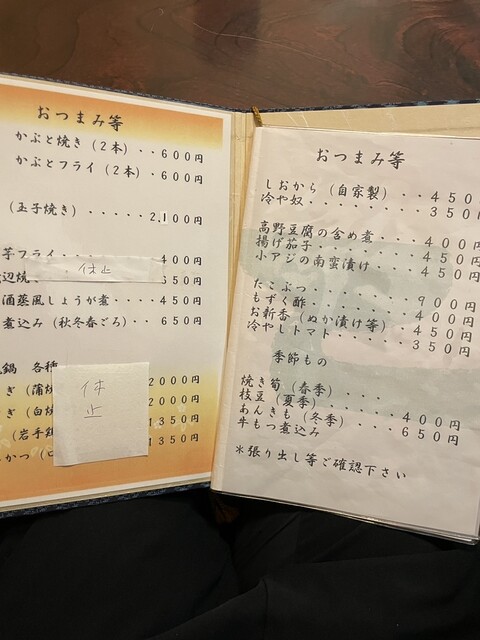 おつまみ等
かぶと焼き(2本)・・600円
かぶとフライ(2本)・600円
(玉子焼き)・・・・・2,100円
芋フライ 400円
辺焼 休止 350円
酒蒸風しょうが煮・・・・450円
煮込み(秋冬春ごろ)・・650円
鍋 各種
ぎ(蒲焼 2000円
ぎ(白焼 2000円
(岩手鶏 1350円
かつ 1350円
休止
おつまみ等
しおから(自家製)・・450
冷や奴・・・・・・・350円
高野豆腐の含め煮・・400円
揚げ茄子・・・・・・450円
小アジの南蛮漬け・・450円
たこぶつ・・・・・・900円
もずく酢・・・・・・400円
お新香(ぬか漬け等)450円
冷やしトマト・・・・350円
季節もの
焼き筍(春季)・・・
枝豆(夏季)・・・・400円
あんきも(冬季)・・650円
牛もつ煮込み
*張り出し等ご確認下さい